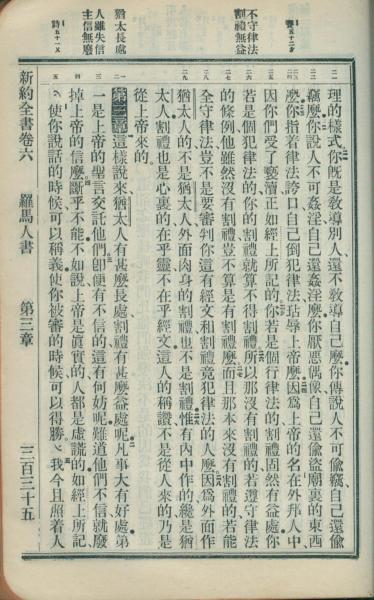 賽五十二章
不守律法
割禮無益
猶太長處
人雖失信
主信無廢
詩五十一
二一
二二
二三
二四
二五
二六
二七
二八
二九
一
二
三
四
五
理的樣式、你既是教導別人、還不教導自己麼、你傳說人不可偷竊、自己還偷
竊麼、你說人不可姦淫、自己還姦淫麼、你厭惡偶像、自己還偷盜廟裏的東西
麼、你指着律法誇口、自己倒犯律法、玷辱上帝麼、因爲上帝的名、在外邦人中、
因你們受了褻瀆、正如經上所記的、你若是個行律法的、割禮固然有益處、你
若是個犯律法的、你的割禮、就算不得割禮、所以那沒有割禮的、若遵守律法
的條例、他雖然沒有割禮、豈不算是有割禮麼、而且那本來沒有割禮的、若能
全守律法、豈不是要審判你這有經文和割禮、竟犯律法的人麼、因爲外面作
猶太人的、不是猶太人、外面肉身的割禮、也不是割禮、惟有內中作的、纔是猶
太人、割禮也是心裏的、在乎靈、不在乎經文、這人的稱讚、不是從人來的、乃是
從上帝來的
第三章 這樣說來、猶太人有甚麼長處、割禮有甚麼益處呢、凡事大有好處、第
一是上帝的聖言交託他們、卽便有不信的、這有何妨呢、難道他們不信、就廢
掉上帝的信麼、斷乎不能、不如說上帝是眞實的、人都是虛謊的、如經上所記
使你說話的時候、可以稱義、使你被審的時候、可以得勝、我今且照着人
新約全書卷六 羅馬人書 第三章 三百三十五